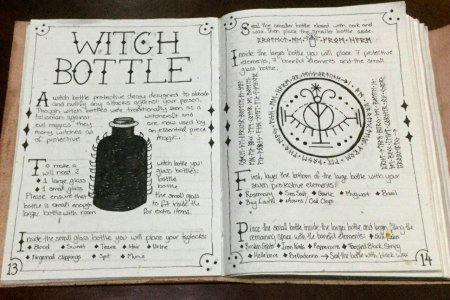 WITCH
BOTTLE
A witch bottle protective decoy designed to absorb
and nullify any attacks against your person.
Though witch bottles were traditionally seen as a
talisman against
witchcraft and
evil magics they
are now used by
many witches as
an essential piece
of protective
magic.
To make a
witch bottle you
will need 2
glass bottles:
1 large
bottle
1 small
bottle
Please ensure that
the small glass
bottle is small enough
to fit inside the
large bottle with room
for extra items.
Inside the small glass bottle you will place your taglocks:
Blood Sweat Tears Hair Urine
Fingernail clippings Spit Mumia
13
Seal the smaller bottle closed with cork and
wax then place the smaller bottle aside.
Inside the large bottle you will place 7 protective
elements, 7 baneful elements and the small
glass bottle.
First, layer the bottom of the large bottle with your
seven protective elements:
Rosemary Sea Salt Garlic Mugwort Basil
Bay Laurel Acorns / Oak Caps
Place the small bottle inside the large bottle and begin filling the
remaining space with the baneful elements:
Broken Glass Iron Nails Peppercorns Tangled Black String
Hellebore Belladonna Seal the bottle with black wax
14